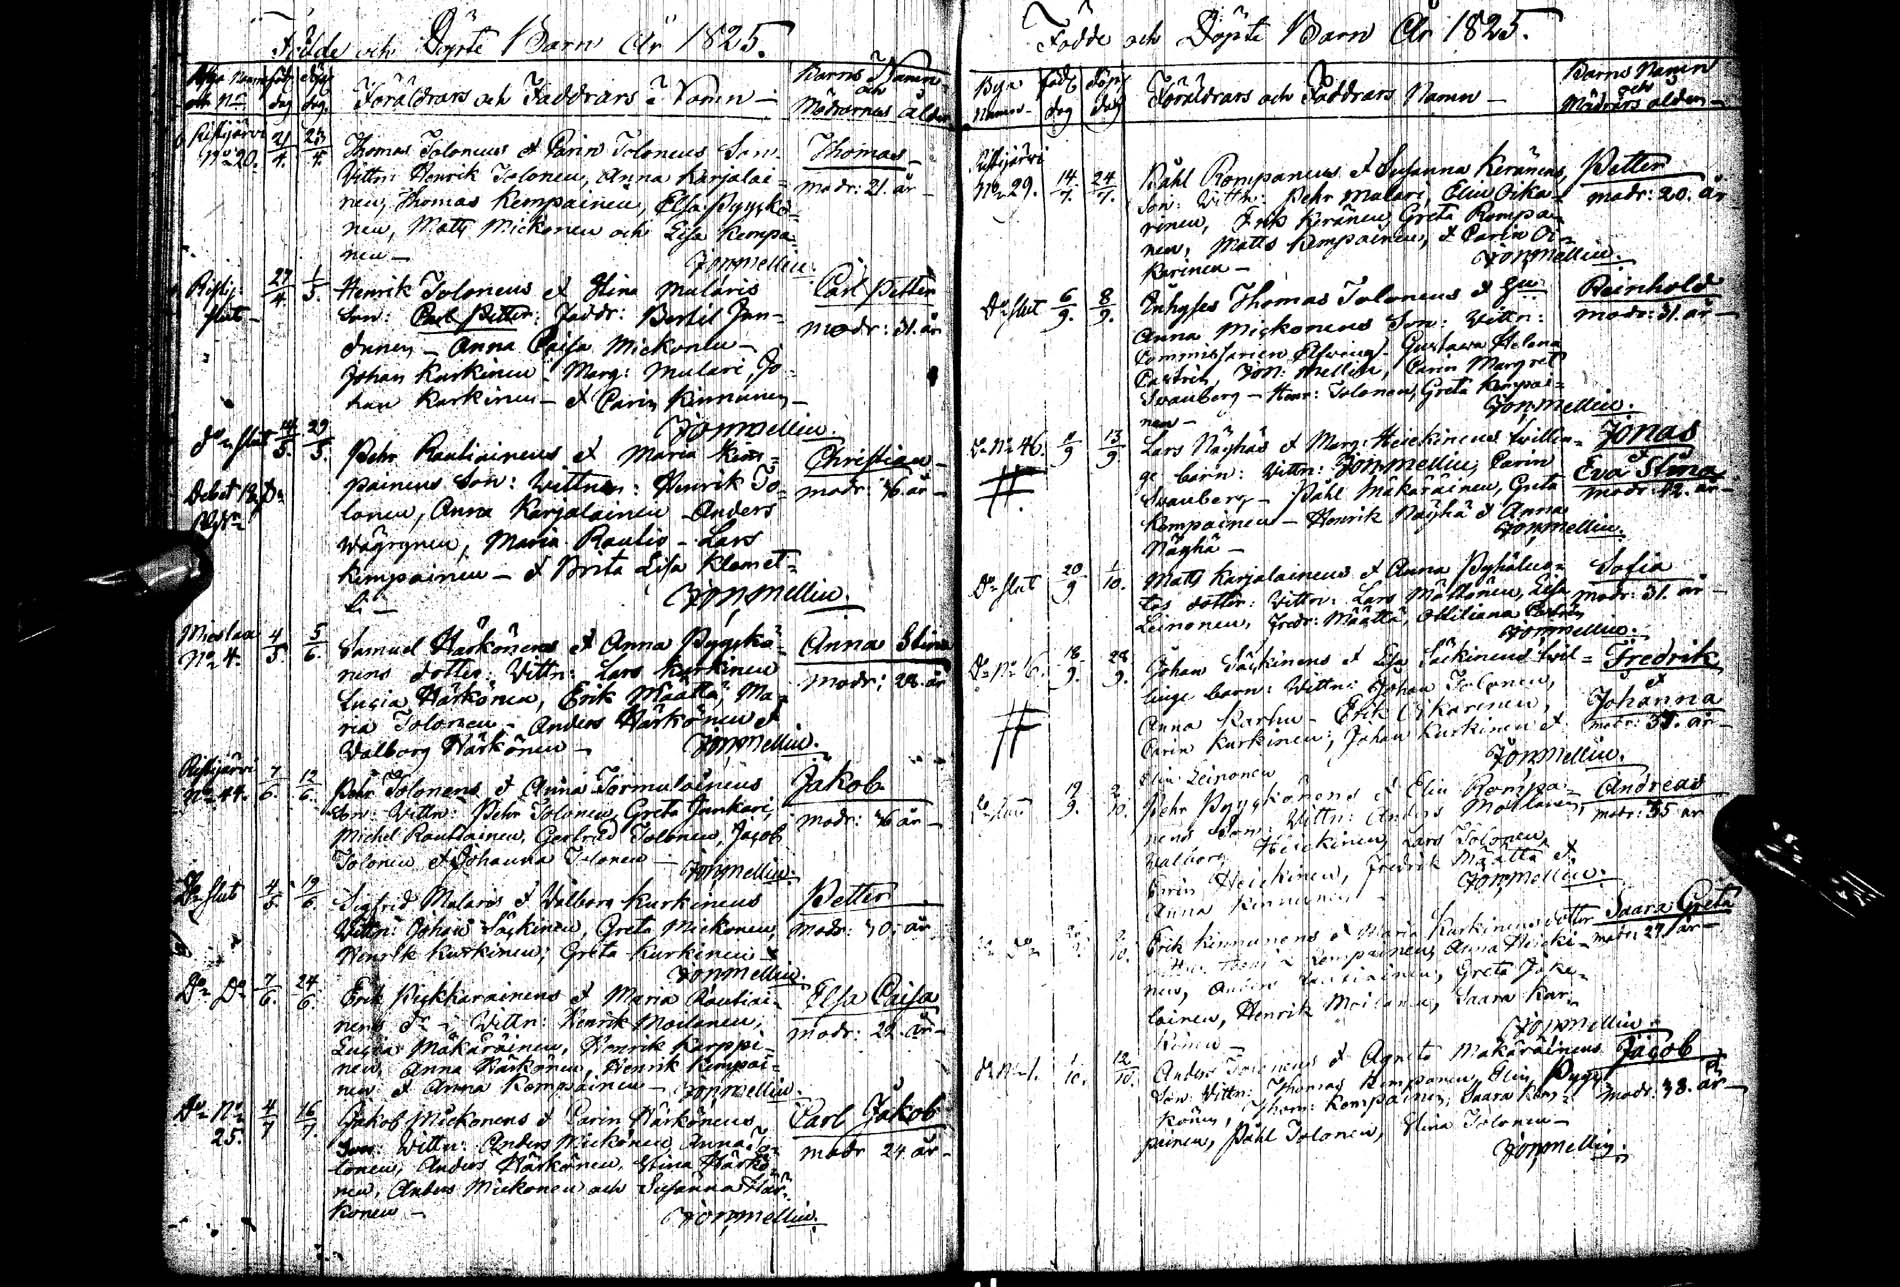 Födde och Döpte Barn År 1825.
Föräldrars och Faddrars Namn
Barns Namn
och
Mödrarnes ålder
Ristijärvi
No 20.
21/4.
23/4.
Thomas Tolonens & Carin Tolonens Son.
Vittn: Henrik Tolonen, Anna Karjalai=
nen, Thomas Kempainen, Elsa Pyykkö=
nen, Matts Mickonen och Lisa Kempa
nen —
Jon: Mellin.
Thomas
modr: 21. år
29/4.
1/5.
Henrik Tolonens & Stina Mularis
Son: Carl Petter; Faddr: Bertil Jun-
dunen — Anna Caisa Mickonen —
Johan Kurkinen — Marg: Mulari, Jo=
han Kurkinen — & Carin Kinnunen —
Jon: Mellin.
Carl Petter
modr: 31. år
Do Slut
14/5.
29/5.
Pehr Rautiainens & Maria Kem=
painens Son: Vittnen: Henrik To=
lonen, Anna Karjalainen Anders
Maria Rautio — Lars
Kempainen — & Brita Lisa Klemet=
ti —
Jon: Mellin.
Christian
modr: 36 år
Mieslax
No 4.
4/5
5/6.
Samuel Härkönens & Anna Pyykkö=
nens dotter: Vittn: Lars Kurkinen
Lucia Härkönen, Erik Määttä, Ma=
ria Tolonen — Anders Härkönen &
Valborg Härkönen —
Jon: Mellin.
Anna Stina
modr: 28. år
Ristijärvi
No 44.
7/6.
12/6.
Pehr Tolonens & Anna Tormulainens
Son: Vittn: Pehr Tolonen, Greta Junkari,
Michel Rautiainen, Gertrud Tolonen, Jacob
Tolonen & Johanna Tolonen —
Jon: Mellin.
Jakob
modr: 36 år —
Do Slut
4/5
19/6.
Sigfrid Mularis & Valborg Kurkinens
Vittn: Johan Säkkinen, Greta Mickonen,
Henrik Kurkinen, Greta Kurkinen
Jon: Mellin.
Petter
modr: 30. år
Do Do
7/6.
24/6
Erik Pikkarainens & Maria Rautiai=
nens Dr — Vittn: Henrik Moilanen,
Lucia Mäkäräinen, Henrik Karppi=
nen, Anna Härkönen, Henrik Kempai=
nen & Anna Kempainen —
Jon: Mellin.
Elsa Caisa
modr: 22. år —
Do No
25.
4/7
16/7.
Jakob Mickonens & Carin Härkönens
Son: Vittn: Anders Mickonen, Anna To=
lonen, Anders Härkönen, Stina Härkö=
nen, Anders Mickonen och Susanna Här=
könen —
Jon: Mellin.
Carl Jakob
modr 24 år —
Födde och Döpte Barn År 1825.
Bya
Namn
född
dag
döpt
dag
Föräldrars och Faddrars Namn —
Barns Namn
och
Mödrars ålder —
Ristijärvi
No 29.
14/7.
24/7.
Påhl Rompanens & Susanna Keränens
Son: Vittn: Pehr Mulari, Elin Oika=
rinen, Erik Keränen, Greta Rompa=
nen, Matts Kempainen, & Carin Oi=
karinen —
Jon: Mellin.
Petter
modr: 20. år
Do Slut
6/9.
8/9.
Inhyses Thomas Tolonens & Hu
Anna Mickonens Son: Vittn:
Commissarien Elfving — Gustava Helena
Castrén, Jon: Mellin, Carin Margret
Svanberg — Henr: Tolonen, Greta Kempai=
nen —
Jon: Mellin.
Reinhold
modr: 31. år —
Do No 46.
13/9
Lars Näyhäs & Marg: Heickinens tvillin=
ge barn: Vittn: Jon: Mellin, Carin
Svanberg — Påhl Mäkäräinen, Greta
Kempainen — Henrik Näyhä & Anna
Näyhä —
Jon: Mellin.
Jonas
&
Eva Stina
modr: 42. år —
Do Slut
20/9
1/10.
Matts Karjalainens & Anna Pyhäluo=
tos dotter: Vittn: Lars Möttönen, Lisa
Leinonen, Fredr: Määttä, Ottiliana Castrén
Jon: Mellin.
Sofia
modr: 31. år —
Do No 16.
18/9.
28/9.
Johan Säkkinens & Lisa Säkkinens tvil=
linge barn: Vittn: Johan Tolonen,
Anna Karhu — Erik Oikarinen,
Carin Kurkinen, Johan Kurkinen &
Elin Leinonen
Jon: Mellin.
Fredrik
&
Johanna
modr: 37. år —
19/9.
2/10.
Pehr Pyykkönens & Elin Rompa=
nens Son: Vittn: Anders Moilanen,
Valborg Heickinen, Lars Tolonen,
Carin Heickinen, Fredrik Määttä &
Anna Kinnunen
Jon: Mellin.
Andreas
modr: 35 år
Erik Kinnunens & Maria Kurkinens dotter
Kempainen, Anna Heicki=
nen, Anders Rautiainen, Greta Joke=
lainen, Henrik Moilanen, Saara Kar=
Jon: Mellin.
Saara Greta
modr: 27. år —
Do No 1.
1/10.
12/10.
Anders Tolonens & Agneta Mäkäräinens
Son: Vittn: Thomas Kempainen, Elin Pyyk=
könen, Thom: Kempainen, Saara Kem=
painen, Påhl Tolonen, Stina Tolonen —
Jon: Mellin.
Jacob
modr: 38. år —